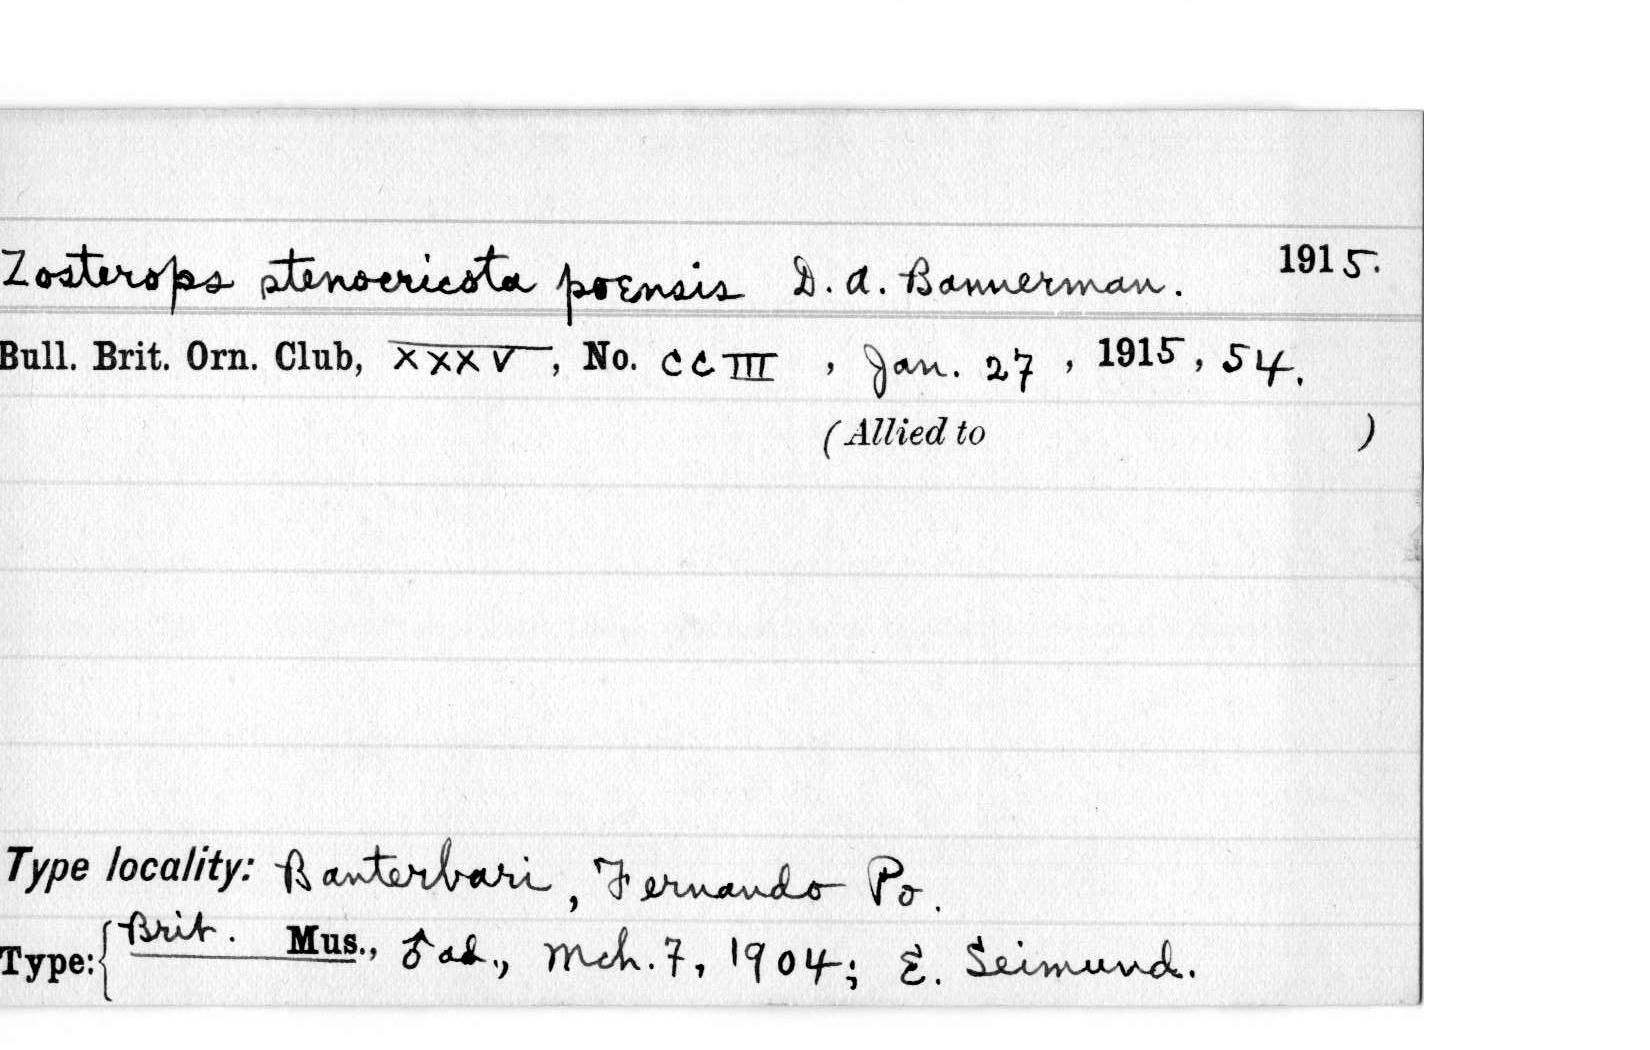 Zosterops stenocricota poensis D. A. Bannerman. 1915.
Bull. Brit. Orn. Club, XXXV, No. CCIII, Jan. 27, 1915, 54.
(Allied to )
Type locality: Banterbari, Fernando Po.
Type: { Brit. Mus., ♂ ad., Mch. 7, 1904; E. Seimund.